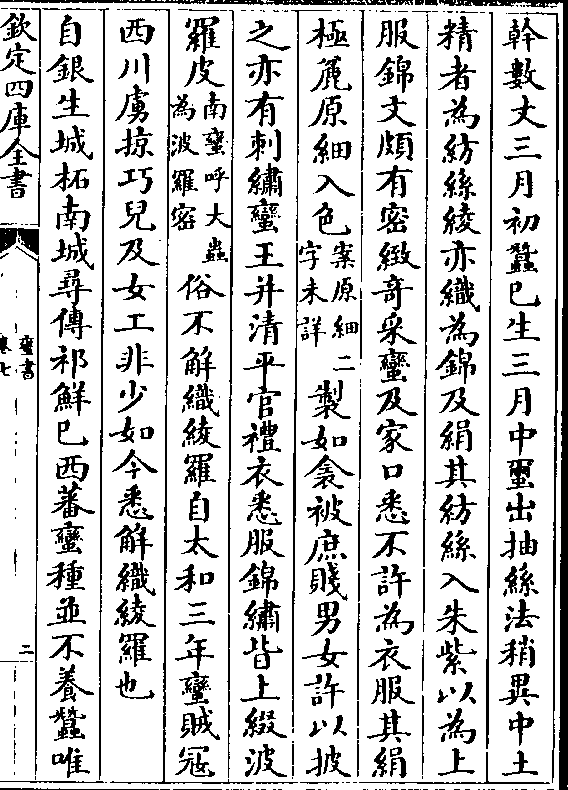 幹數丈三月初蠶已生三月中蠒出抽絲法稍異中土
精者為紡絲綾亦織為錦及絹其紡絲入朱紫以為上
服錦文頗有密緻奇采蠻及家口悉不許為衣服其絹
極麄原細入色案原細二字未詳製如衾被庶賤男女許以披
之亦有刺繡蠻王并清平官禮衣悉服錦繡皆上綴波
羅皮南蠻呼大蟲為波羅密俗不解織綾羅自太和三年蠻賊冦
西川虜掠巧兒及女工非少如今悉解織綾羅也
自銀生城柘南城尋傳祁鮮已西蕃蠻種並不養蠶唯
欽定四庫全書
蠻書
卷七
二